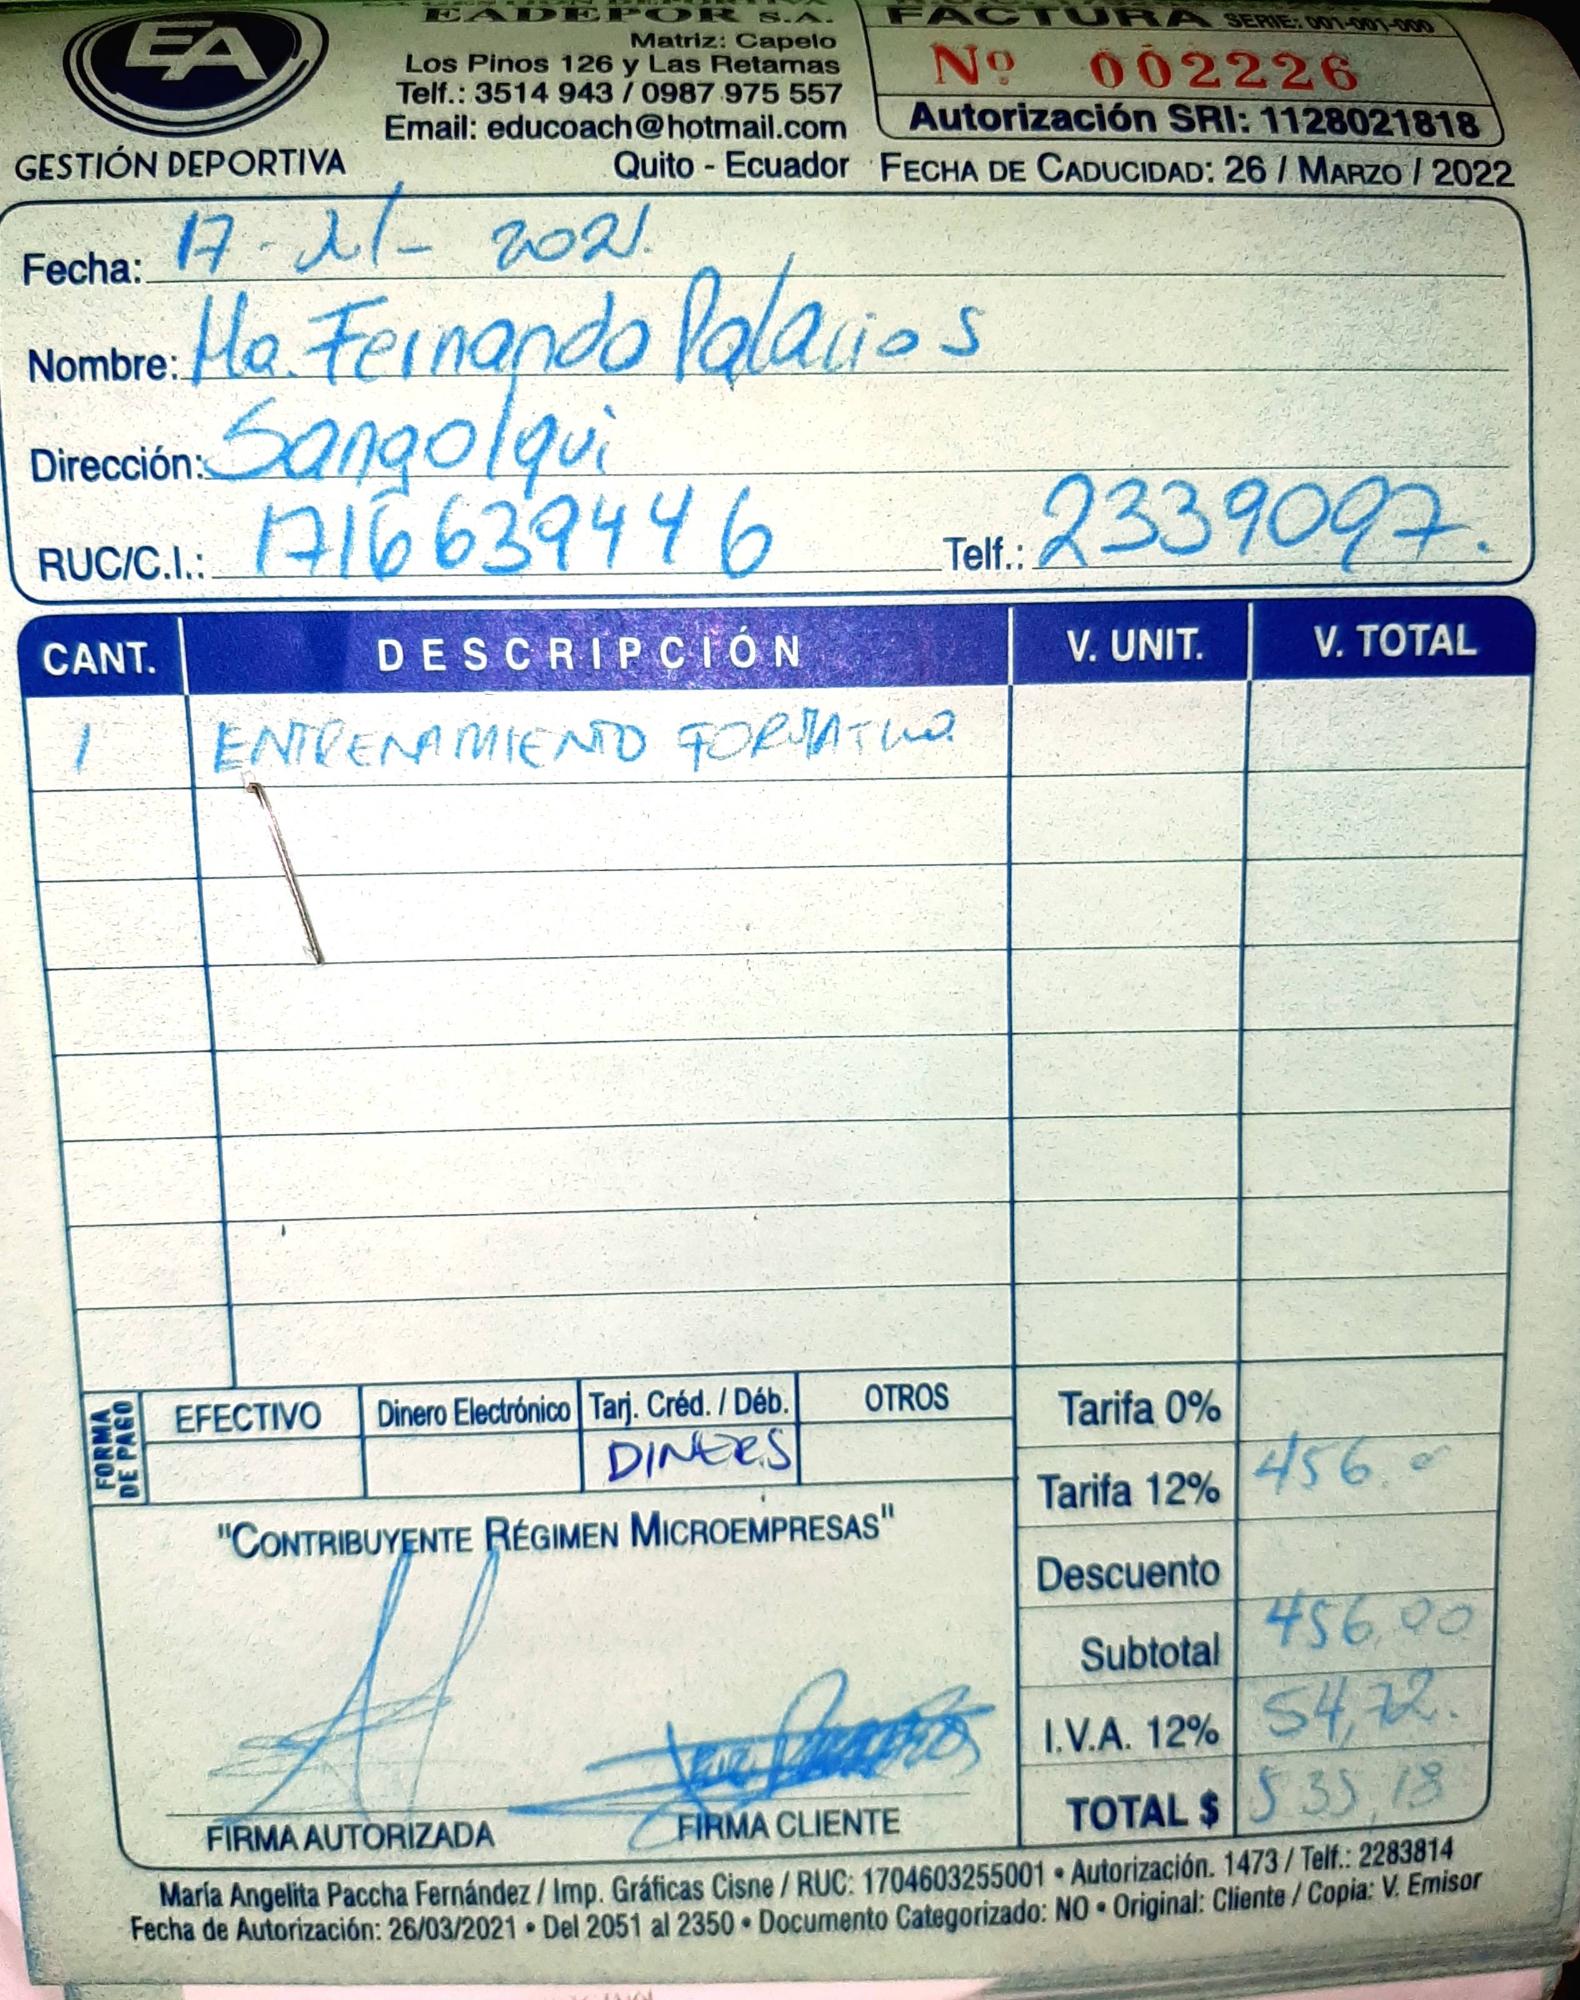 EA
GESTIÓN DEPORTIVA
EADEPOR S.A.
Matriz: Capelo
Los Pinos 126 y Las Retamas
Telf.: 3514 943 / 0987 975 557
Email: educoach@hotmail.com
Quito - Ecuador
FACTURA SERIE: 001-001-000
Nº 002226
Autorización SRI: 1128021818
FECHA DE CADUCIDAD: 26 / MARZO / 2022
Fecha: 17 - Jul - 2021.
Nombre: Ma. Fernanda Palacios
Dirección: Sangolqui
RUC/C.I.: 1716639446 Telf.: 2339097.
CANT. DESCRIPCIÓN V. UNIT. V. TOTAL
1 ENTRENAMIENTO FORMATIVO
FORMA DE PAGO
EFECTIVO Dinero Electrónico Tarj. Créd. / Déb. OTROS
DINERS
Tarifa 0%
Tarifa 12% 456.00
Descuento
Subtotal 456,00
I.V.A. 12% 54,72.
TOTAL $ 535,18
"CONTRIBUYENTE RÉGIMEN MICROEMPRESAS"
FIRMA AUTORIZADA FIRMA CLIENTE
María Angelita Paccha Fernández / Imp. Gráficas Cisne / RUC: 1704603255001 • Autorización. 1473 / Telf.: 2283814
Fecha de Autorización: 26/03/2021 • Del 2051 al 2350 • Documento Categorizado: NO • Original: Cliente / Copia: V. Emisor